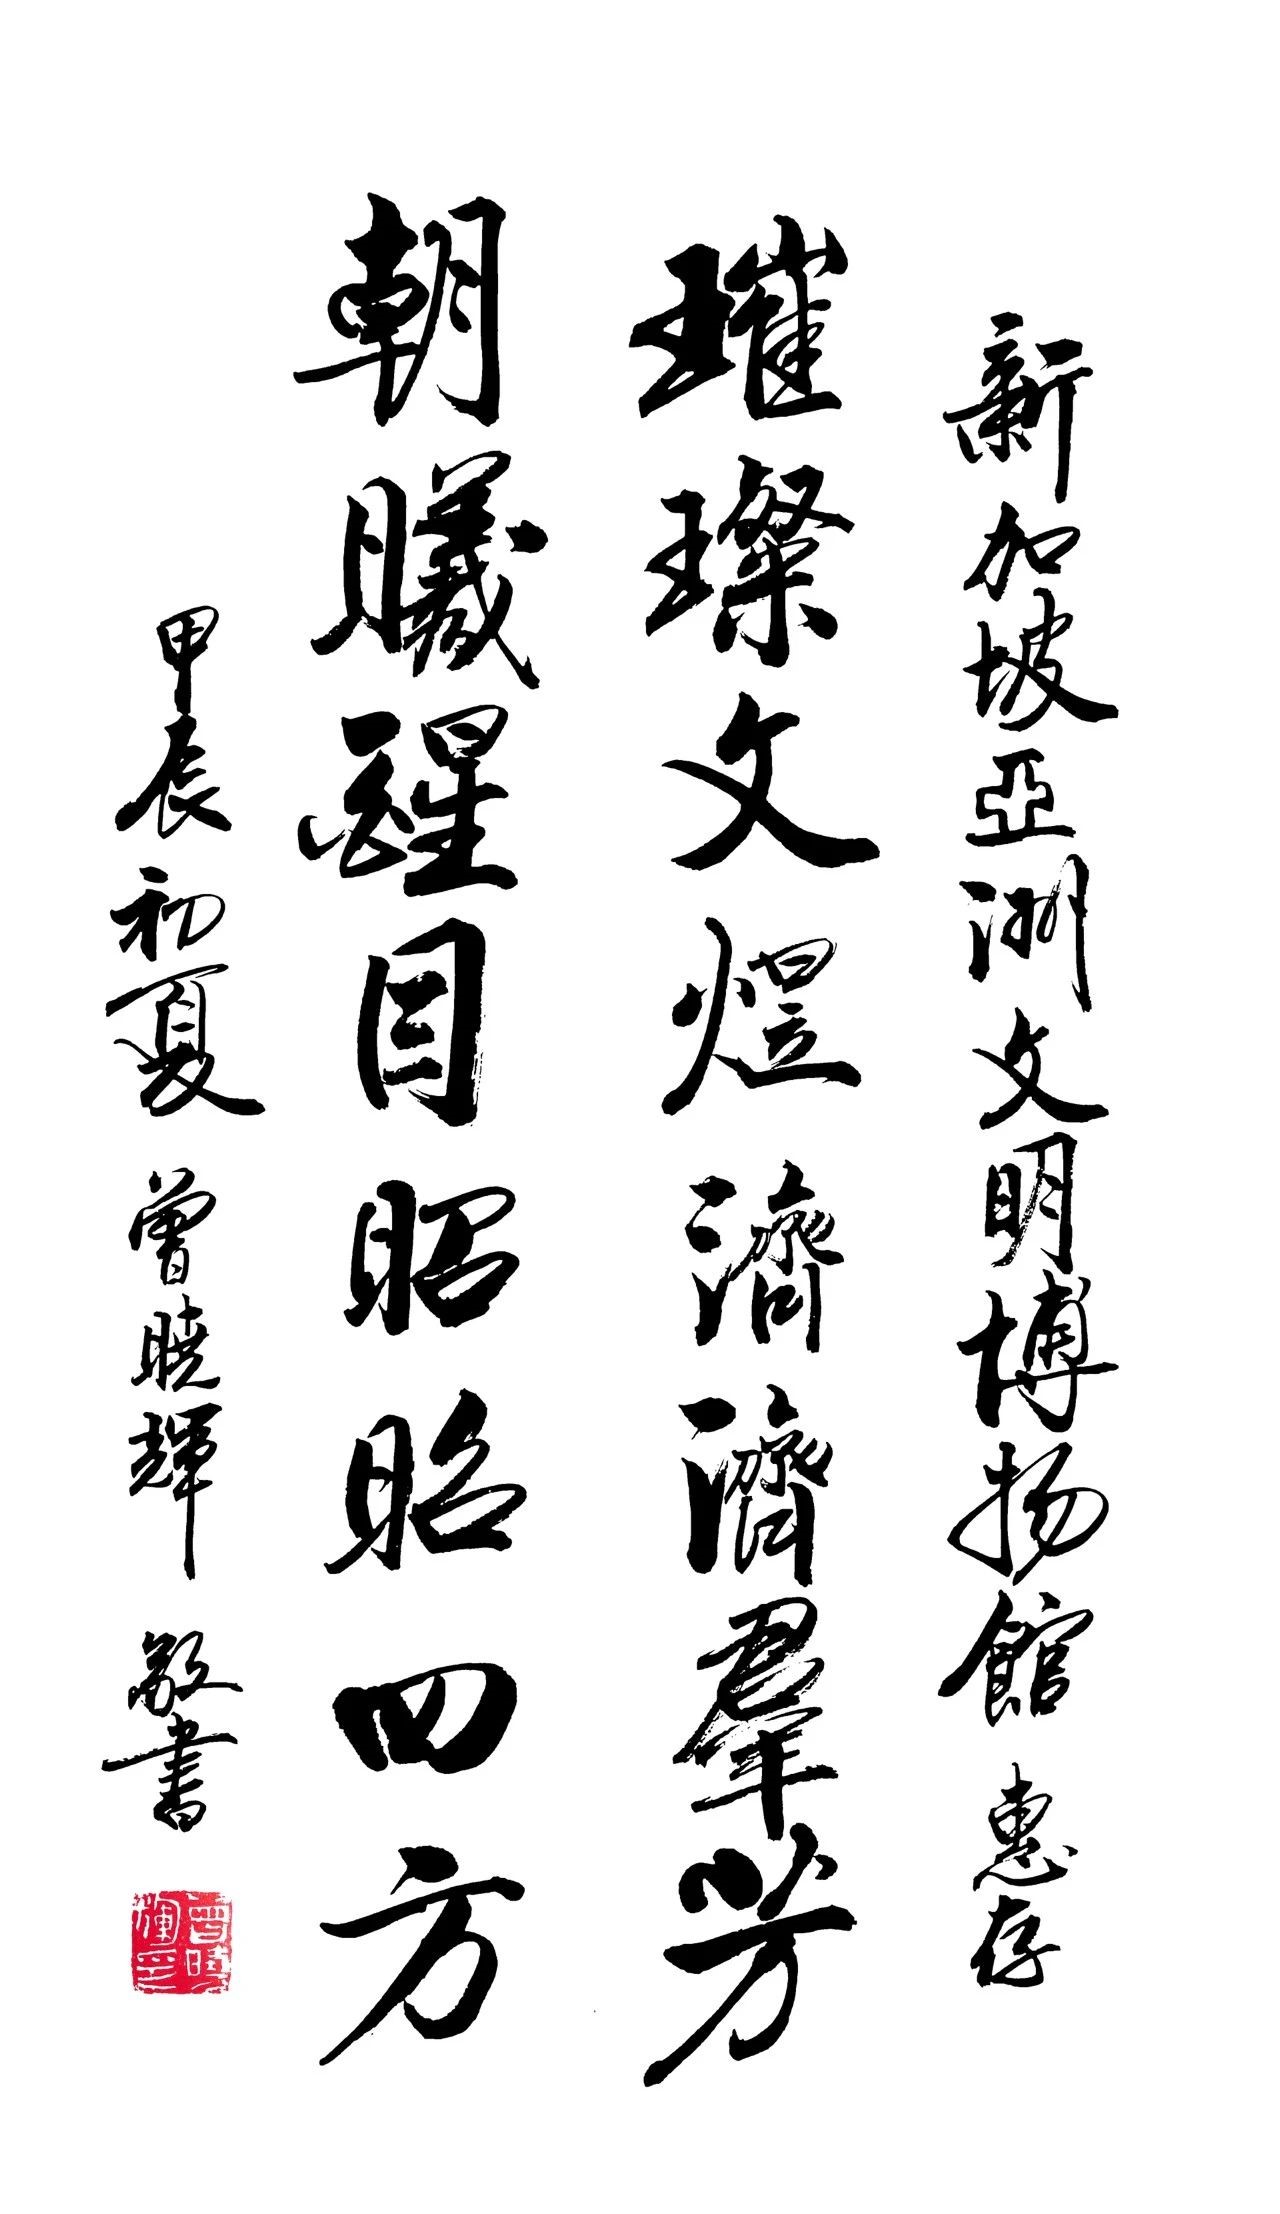 新加坡亞洲文明博物館 惠存
璀璨文煜濟濟羣芳
朝曦醒目昭昭四方
甲辰初夏 曾曉輝 敬書
曾曉輝印